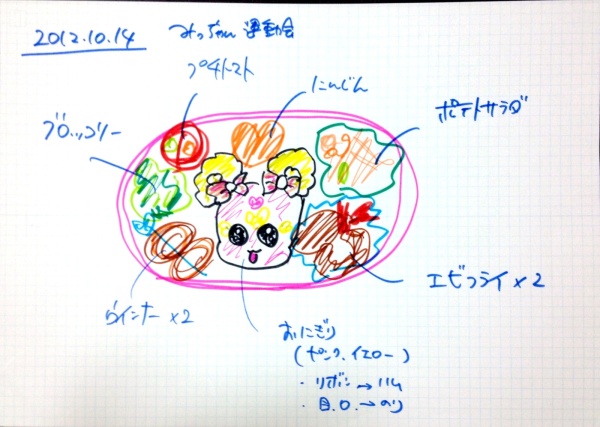 2012.10.14 みっちゃん 運動会
プチトマト
にんじん
ポテトサラダ
ブロッコリー
エビフライ×2
ウインナー×2
おにぎり
(ピンク、イエロー)
・リボン→ハム
・目、口→のり